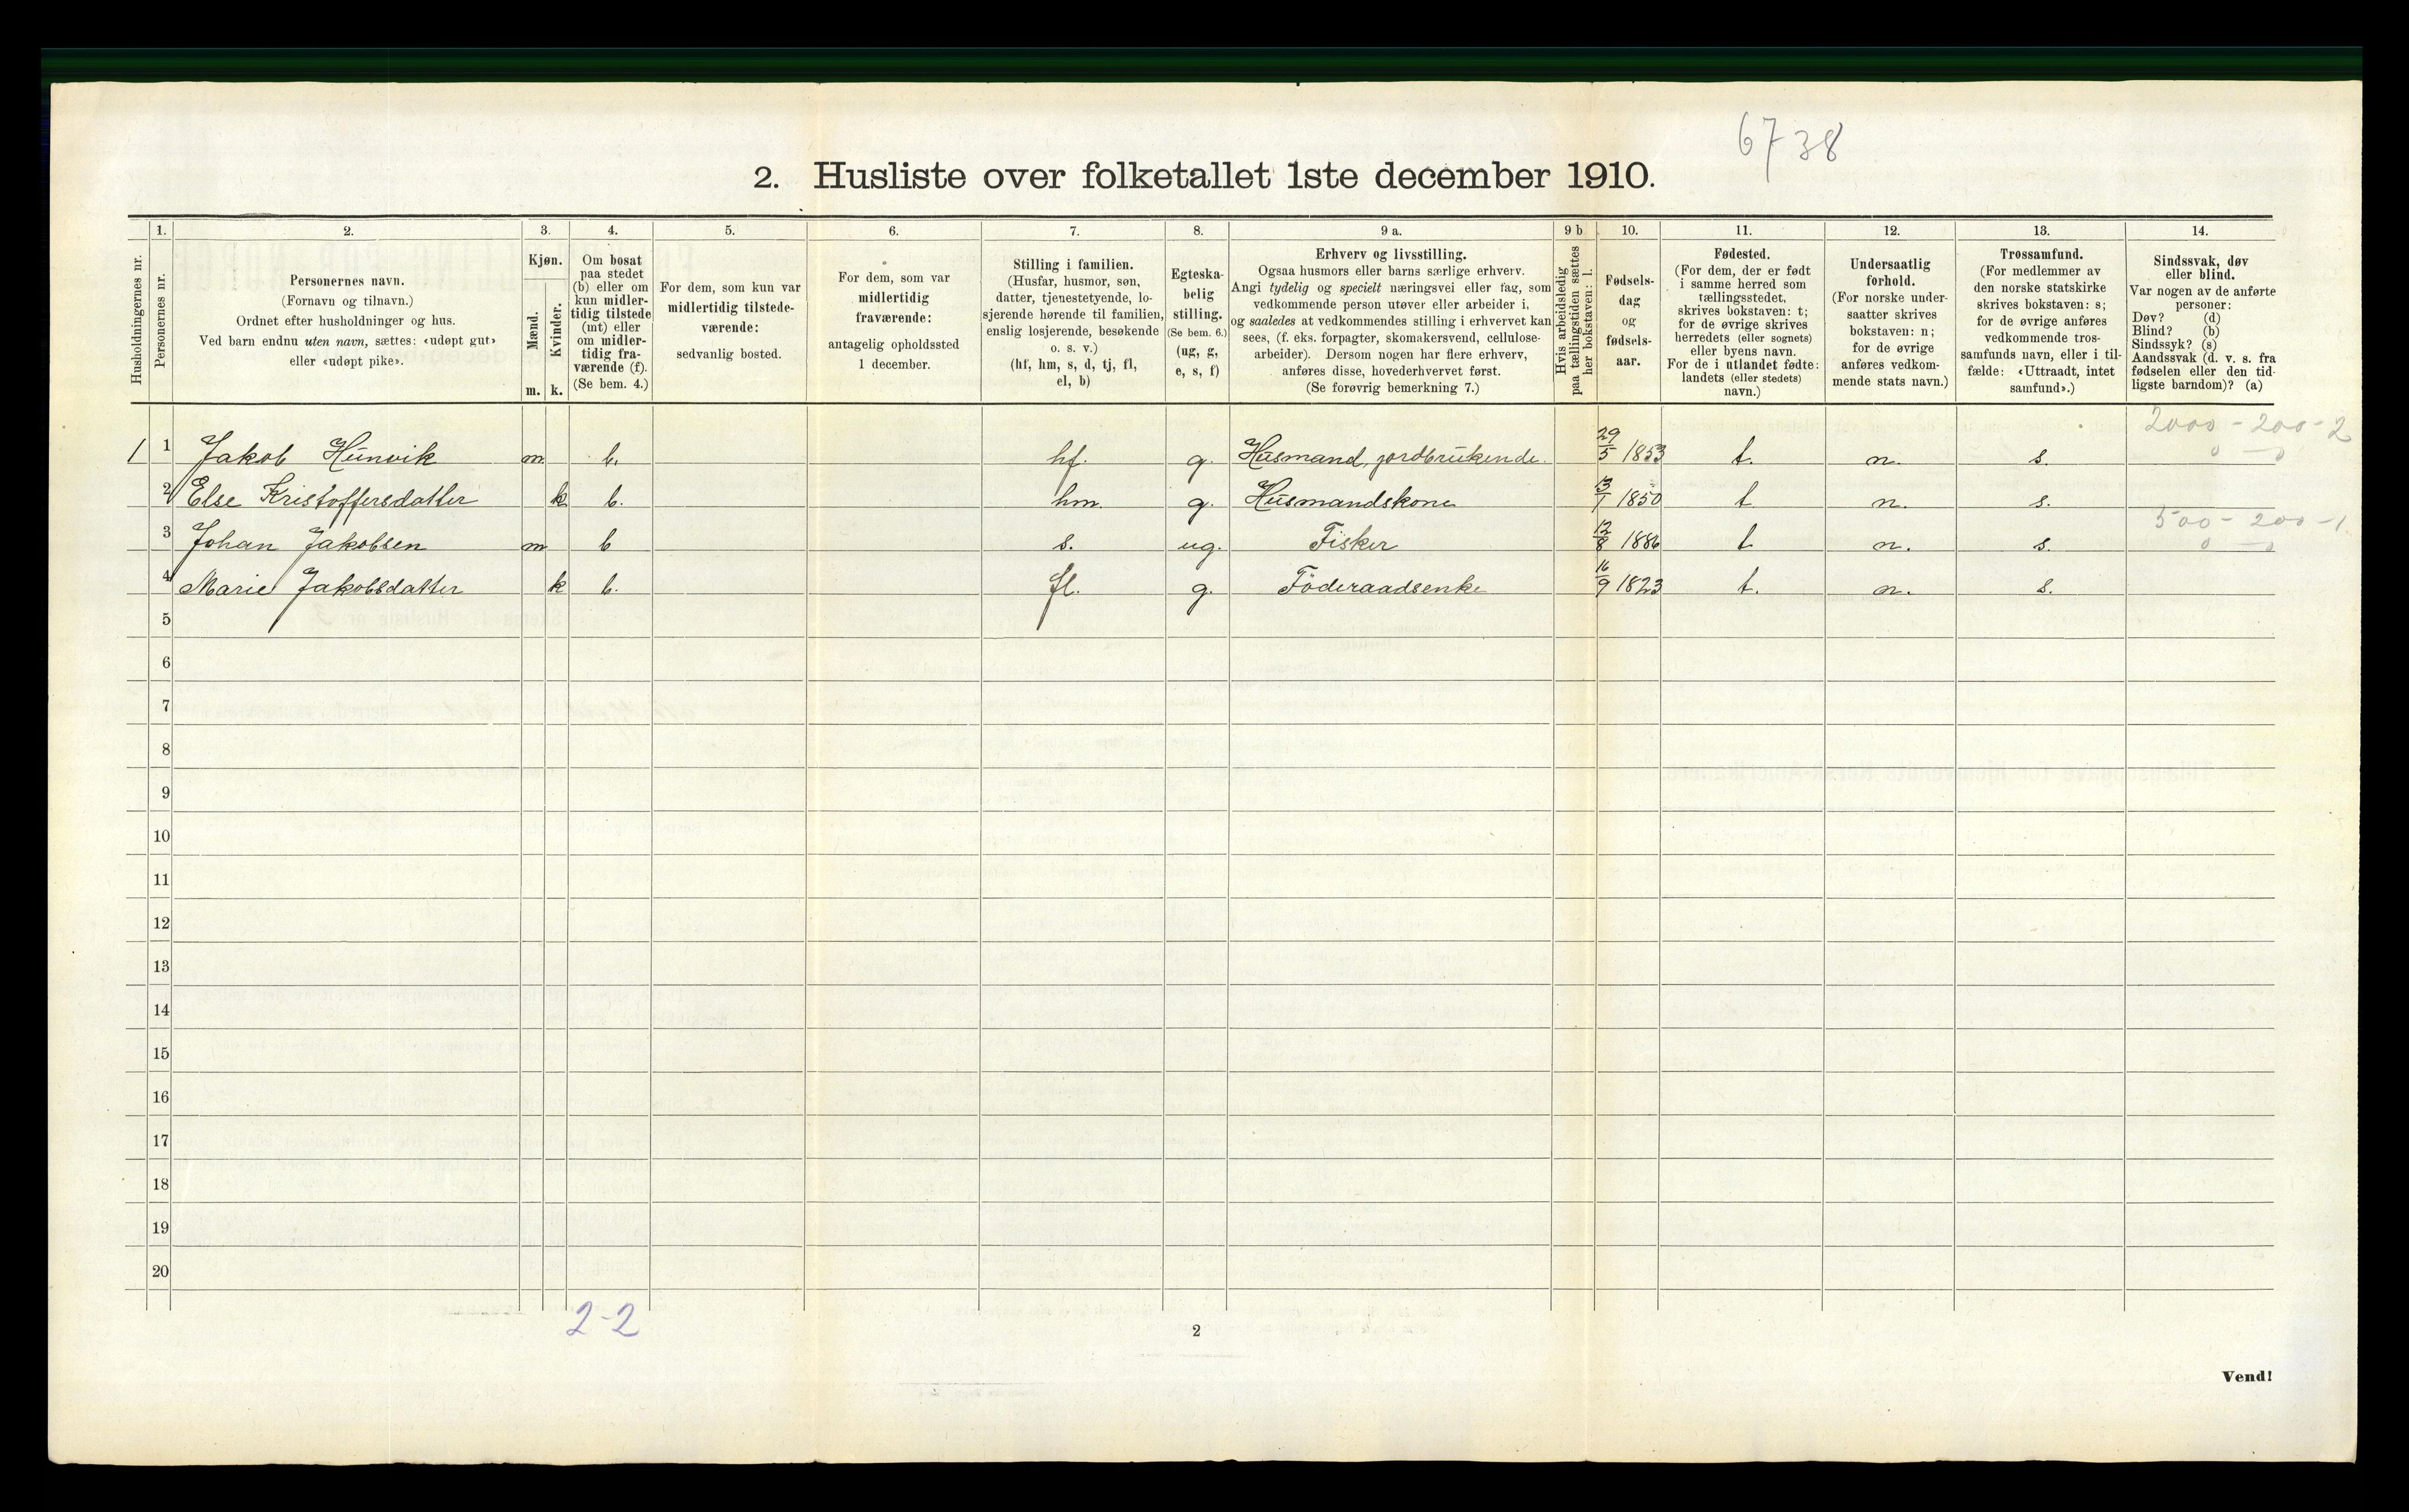 6738
2. Husliste over folketallet 1ste december 1910.
Husholdningernes nr.
1.
Personernes nr.
2.
Personernes navn.
(Fornavn og tilnavn.)
Ordnet efter husholdninger og hus.
Ved barn endnu uten navn, sættes: «udøpt gut»
eller «udøpt pike».
3.
Kjøn.
Mænd.
Kvinder.
m. k.
4.
Om bosat
paa stedet
(b) eller om
kun midler-
tidig tilstede
(mt) eller
om midler-
tidig fra-
værende (f).
(Se bem. 4.)
5.
For dem, som kun var
midlertidig tilstede-
værende:
sedvanlig bosted.
6.
For dem, som var
midlertidig
fraværende:
antagelig opholdssted
1 december.
7.
Stilling i familien.
(Husfar, husmor, søn,
datter, tjenestetyende, lo-
sjerende hørende til familien,
enslig losjerende, besøkende
o. s. v.)
(hf, hm, s, d, tj, fl,
el, b)
8.
Egteska-
belig
stilling.
(Se bem. 6.)
(ug, g,
e, s, f)
9 a.
Erhverv og livsstilling.
Ogsaa husmors eller barns særlige erhverv.
Angi tydelig og specielt næringsvei eller fag, som
vedkommende person utøver eller arbeider i,
og saaledes at vedkommendes stilling i erhvervet kan
sees, (f. eks. forpagter, skomakersvend, cellulose-
arbeider). Dersom nogen har flere erhverv,
anføres disse, hovederhvervet først.
(Se forøvrig bemerkning 7.)
9 b
Hvis arbeidsledig
paa tællingstiden sættes
her bokstaven: l.
10.
Fødsels-
dag
og
fødsels-
aar.
11.
Fødested.
(For dem, der er født
i samme herred som
tællingsstedet,
skrives bokstaven: t;
for de øvrige skrives
herredets (eller sognets)
eller byens navn.
For de i utlandet fødte:
landets (eller stedets)
navn.)
12.
Undersaatlig
forhold.
(For norske under-
saatter skrives
bokstaven: n;
for de øvrige
anføres vedkom-
mende stats navn.)
13.
Trossamfund.
(For medlemmer av
den norske statskirke
skrives bokstaven: s;
for de øvrige anføres
vedkommende tros-
samfunds navn, eller i til-
fælde: «Uttraadt, intet
samfund».)
14.
Sindssvak, døv
eller blind.
Var nogen av de anførte
personer:
Døv? (d)
Blind? (b)
Sindssyk? (s)
Aandssvak (d. v. s. fra
fødselen eller den tid-
ligste barndom)? (a)
2000 - 200 - 2
0 - 0
1 1 Jakob Hunvik m. b. hf. g. Husmand, jordbrukende. 29/5 1853 t. n. s.
2 Else Kristoffersdatter k b. hm. g. Husmandskone 13/1 1850 t n. s.
500 - 200 - 1
0 - 0
3 Johan Jakobsen m b s. ug. Fisker 12/8 1886 t n. s.
4 Marie Jakobsdatter k b. fl. g. Föderaadsenke 16/9 1823 t. n. s.
5
6
7
8
9
10
11
12
13
14
15
16
17
18
19
20
2-2
2
Vend!